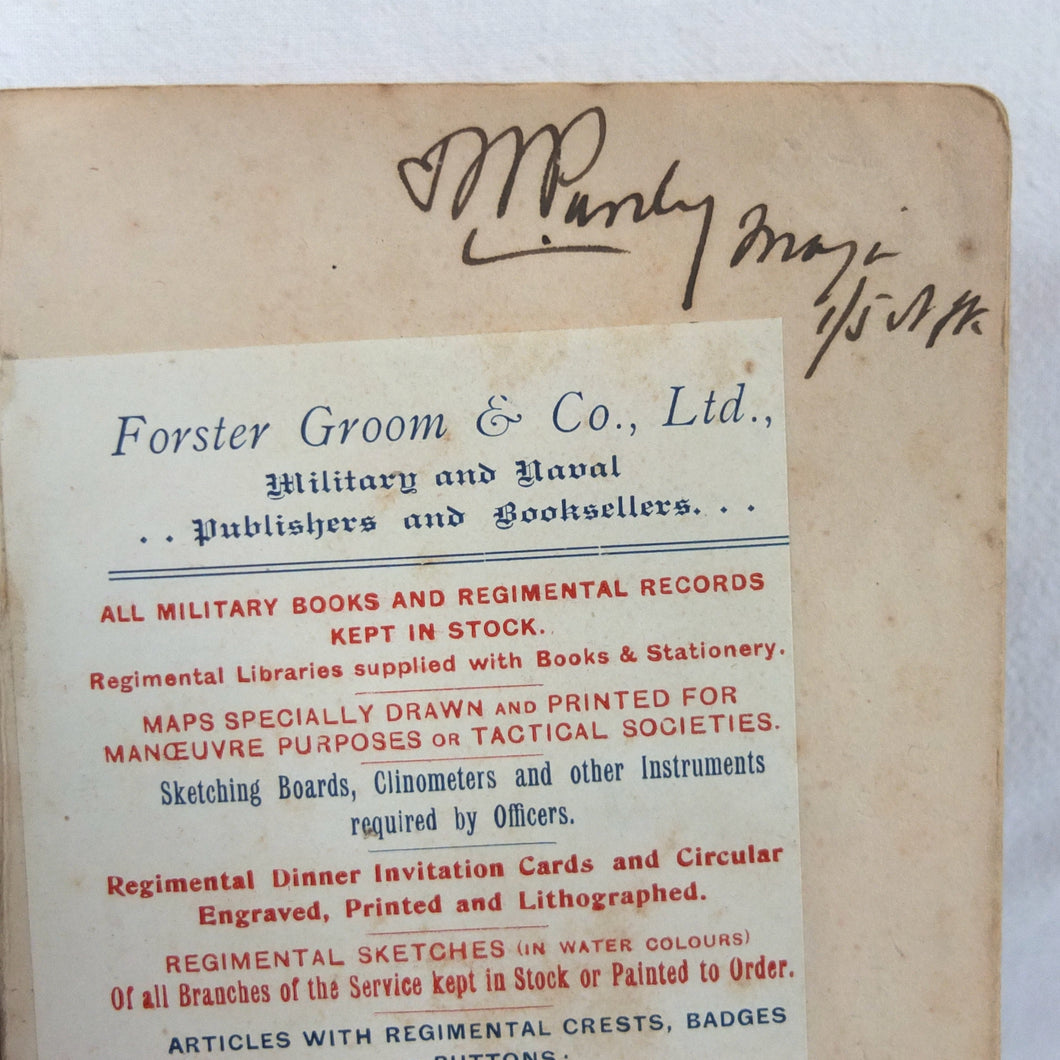 Major
1/5
Forster Groom & Co., Ltd.,
Military and Naval
. . Publishers and Booksellers. . .
ALL MILITARY BOOKS AND REGIMENTAL RECORDS
KEPT IN STOCK.
Regimental Libraries supplied with Books & Stationery.
MAPS SPECIALLY DRAWN AND PRINTED FOR
MANŒUVRE PURPOSES OR TACTICAL SOCIETIES.
Sketching Boards, Clinometers and other Instruments
required by Officers.
Regimental Dinner Invitation Cards and Circular
Engraved, Printed and Lithographed.
REGIMENTAL SKETCHES (IN WATER COLOURS)
Of all Branches of the Service kept in Stock or Painted to Order.
ARTICLES WITH REGIMENTAL CRESTS, BADGES
BUTTONS: